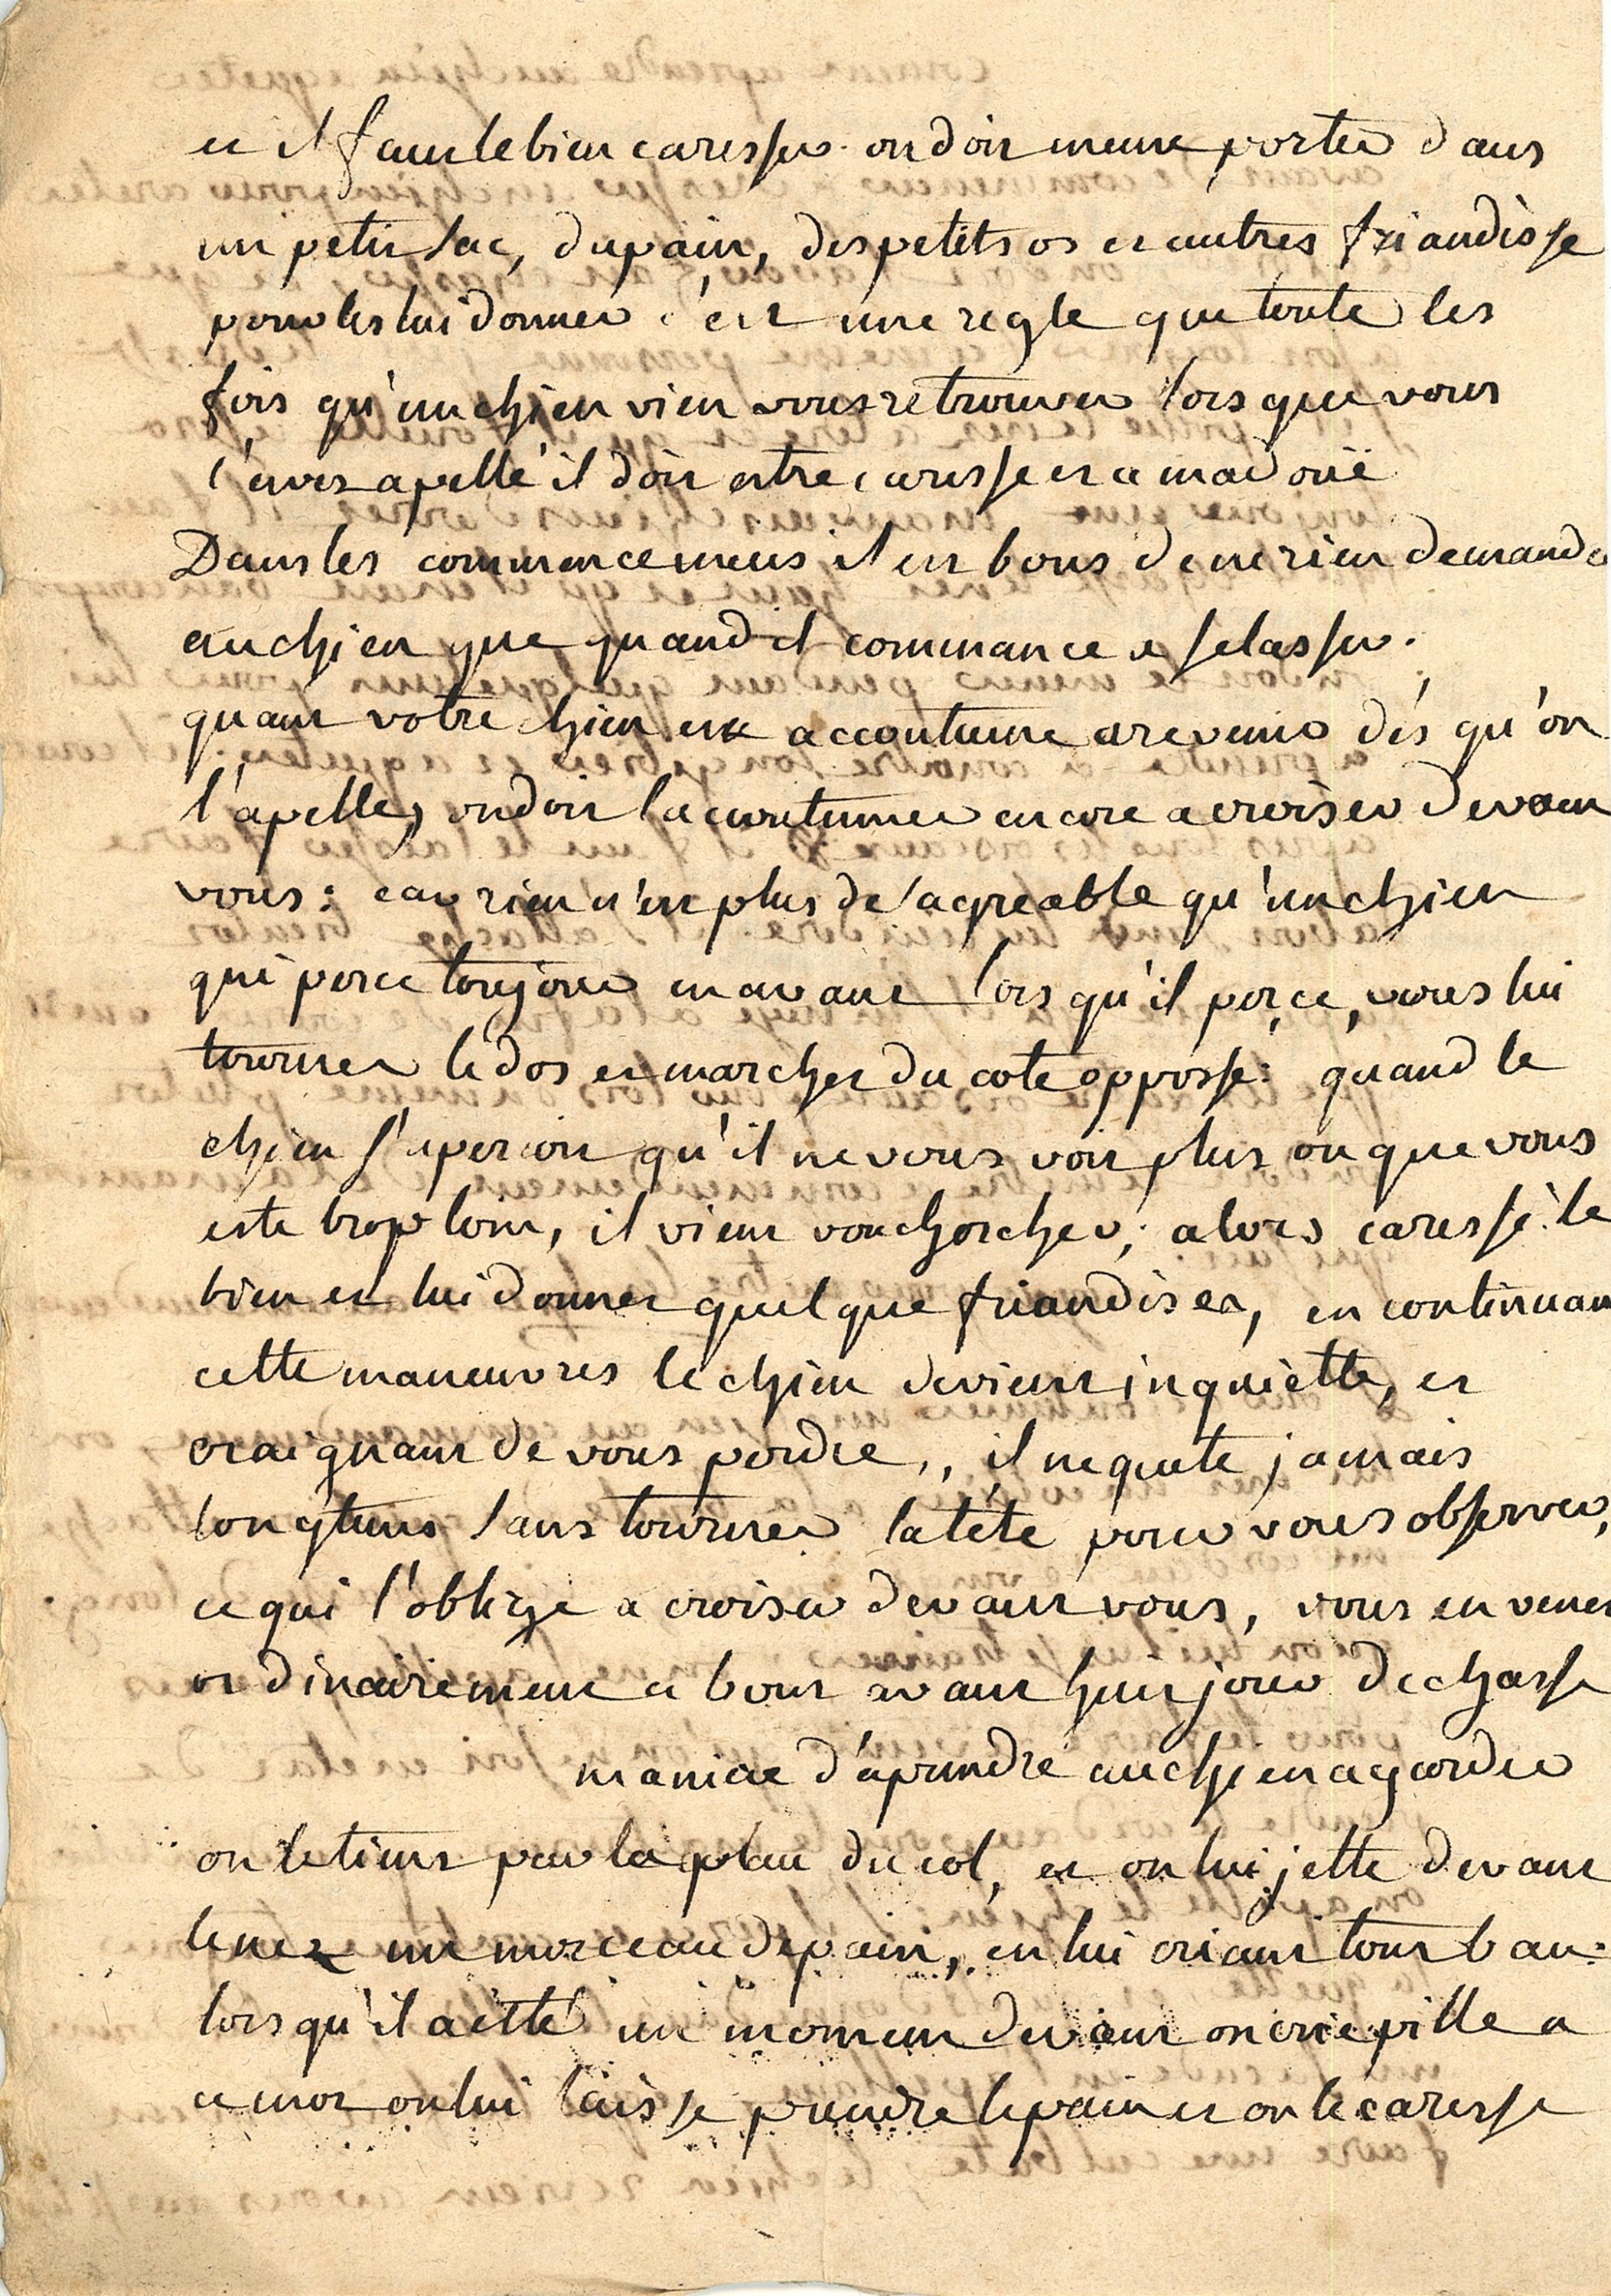 et il faut le bien caresser. on doit meme porter dans
un petit sac, du pain, des petits os et autres friandisse
pour les lui donner c'est une regle que toute les
fois qu'un chien vien vous retrouver lors que vous
l'avez apellé il doit estre caresse et amadoué
Dans les commencemens il est bons de ne rien demander
au chien que quand il commance a se lasser.
quant votre chien est accoutume a revenir dés qu'on
l'apelle, on doit l'acoutumer encore a croiser devant
vous: car rien n'est plus desagreable qu'un chien
qui perce toujour en avant lors qu'il perce, vous lui
tournez le dos et marcher du cote opposse: quand le
chien s'apercoit qu'il ne vous voit plus ou que vous
este trop loin, il vient vou chercher; alors caresse le
bien et lui donner quelque friandises, en continuant
cette maneuvres le chien devient inquiette, et
craignant de vous perdre,, il ne quite jamais
longtems sans tourner la téte pour vous observer,
ce qui l'oblige a croiser devant vous, vous en venez
ordinairement a bout avant huit jour de chasse
maniere d'aprendre au chien a garder
on le tient par la peau du col, et on lui jette devant
le nez un morceau de pain, en lui criant tout beau:
lors qu'il a etté un moment devant on crie pille a
ce mot on lui laisse prendre le pain et on le caresse